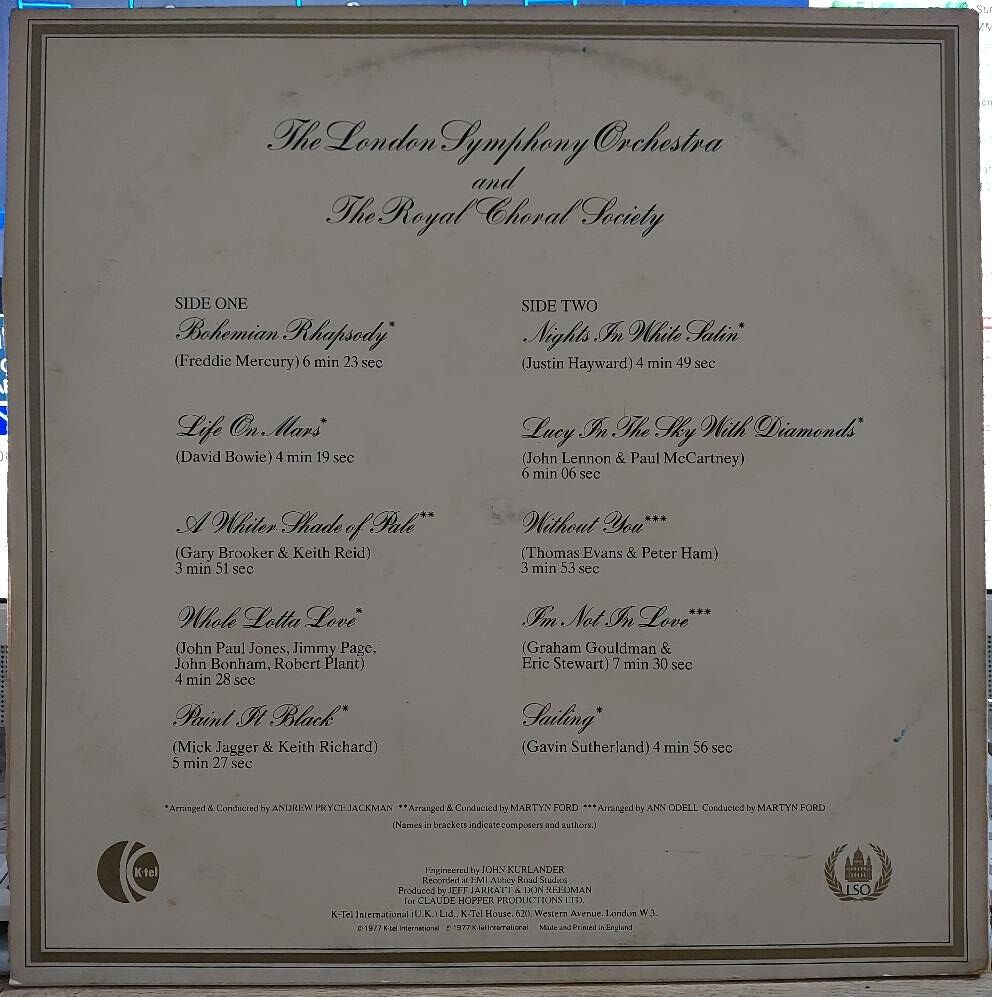 The London Symphony Orchestra
and
The Royal Choral Society
SIDE ONE
Bohemian Rhapsody*
(Freddie Mercury) 6 min 23 sec
Life On Mars*
(David Bowie) 4 min 19 sec
A Whiter Shade of Pale**
(Gary Brooker & Keith Reid)
3 min 51 sec
Whole Lotta Love*
(John Paul Jones, Jimmy Page,
John Bonham, Robert Plant)
4 min 28 sec
Paint It Black*
(Mick Jagger & Keith Richard)
5 min 27 sec
SIDE TWO
Nights In White Satin*
(Justin Hayward) 4 min 49 sec
Lucy In The Sky With Diamonds*
(John Lennon & Paul McCartney)
6 min 06 sec
Without You***
(Thomas Evans & Peter Ham)
3 min 53 sec
I'm Not In Love***
(Graham Gouldman &
Eric Stewart) 7 min 30 sec
Sailing*
(Gavin Sutherland) 4 min 56 sec
*Arranged & Conducted by ANDREW PRYCE JACKMAN **Arranged & Conducted by MARTYN FORD ***Arranged by ANN ODELL Conducted by MARTYN FORD
(Names in brackets indicate composers and authors.)
K-tel
Engineered by JOHN KURLANDER
Recorded at EMI Abbey Road Studios
Produced by JEFF JARRATT & DON REEDMAN
for CLAUDE HOPPER PRODUCTIONS LTD.
K-Tel International (U.K.) Ltd., K-Tel House, 620, Western Avenue, London W.3.
© 1977 K-tel International ℗ 1977 K-tel International Made and Printed in England
LSO